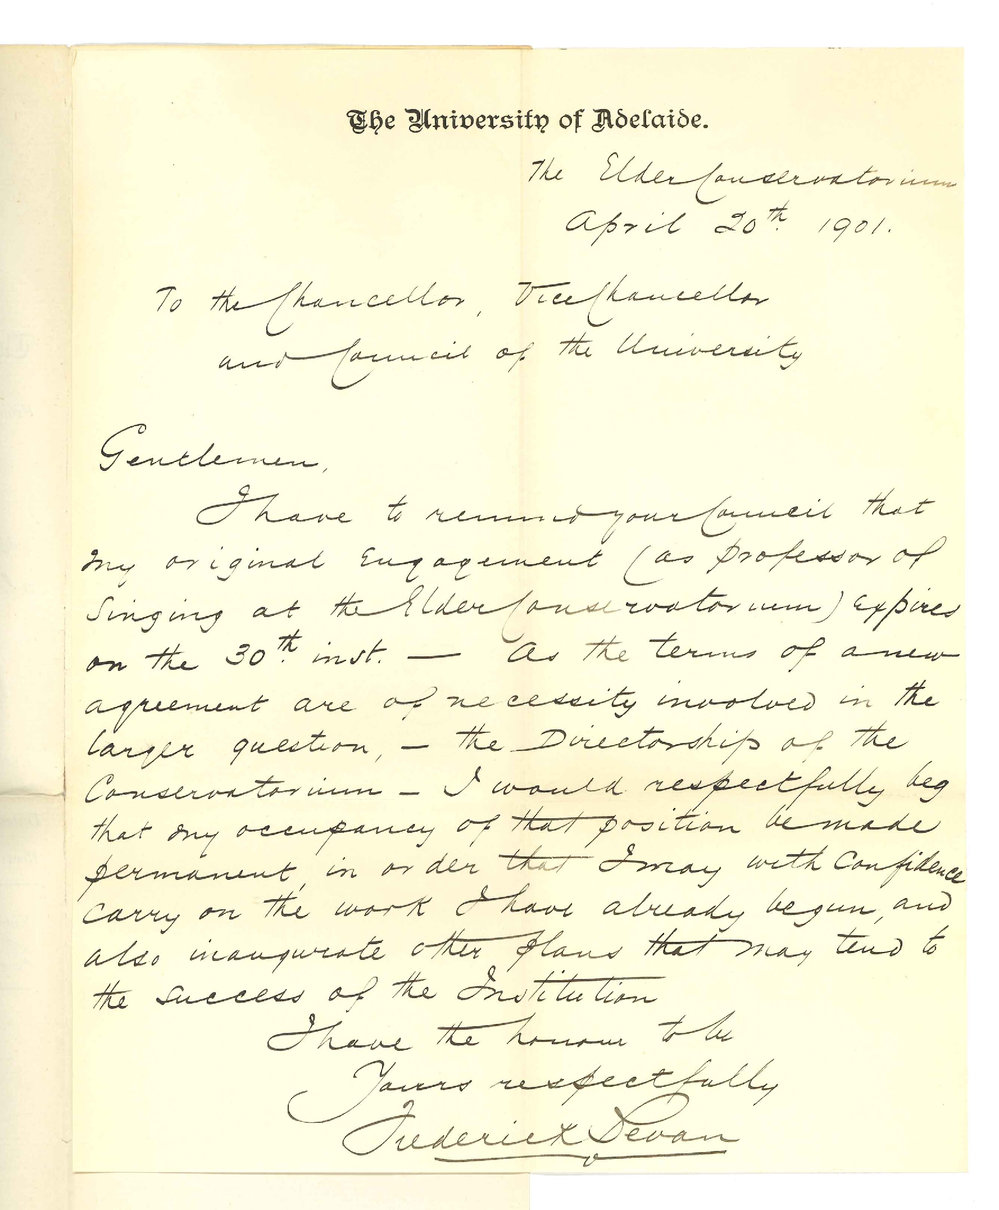 The University of Adelaide.
The Elder Conservatorium
April 20th. 1901.
To the Chancellor, Vice Chancellor
and Council of the University
Gentlemen,
I have to remind your Council that
my original Engagement (as Professor of
Singing at the Elder Conservatorium) Expires
on the 30th. inst. — As the terms of a new
agreement are of necessity involved in the
larger question, — the Directorship of the
Conservatorium — I would respectfully beg
that my occupancy of that position be made
permanent, in order that I may with Confidence
carry on the work I have already begun, and
also inaugurate other plans that may tend to
the success of the Institution
I have the honour to be
Yours respectfully
Frederick Bevan